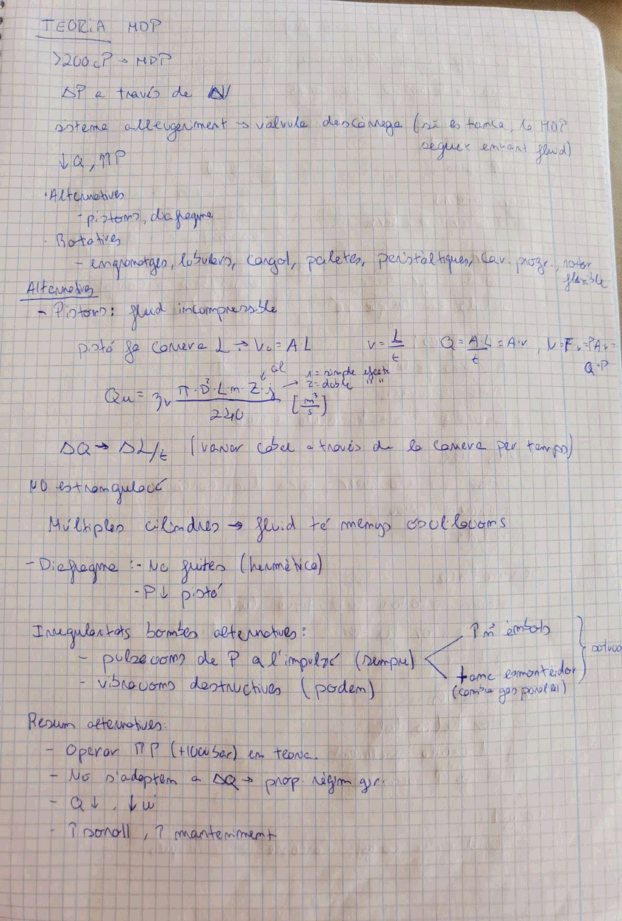 TEORIA MDP
>200cP → MDP
ΔP a través de ΔV
sistema alleugeriment → vàlvula descàrrega (si es tanca, la MDP
segueix entrant fluid)
↓Q, ↑↑P
· Alternatives
- pistons, diafragma
· Rotatives
- engranatges, lobulars, cargol, paletes, peristàltiques, cav. progr., rotor
flexible
Alternatives
- Pistons: fluid incompressible
pistó fa carrera L → V = A L v = L/t Q = A·L/t = A·v,
π·D²·L·n·Z·j
1 = simple efecte
2 = doble " "
240 [m³/s]
ΔQ → ΔL/t (variar cabal a través de la carrera per temps)
NO estrangulació
Múltiples cilindres → fluid té menys oscil·lacions
- Diafragma: - No fuites (hermètica)
- P↓ pistó
Irregularitats bombes alternatives:
- pulsacions de P a l'impulsió (sempre)
↑nº èmbols
- vibracions destructives (poden)
tanc esmorteïdor
Resum alternatives:
- Operar ↑↑P (+100bar) en teoria.
- No s'adapten a ΔQ → prop. règim gir.
- Q↓, ↓w
- ↑soroll, ↑manteniment